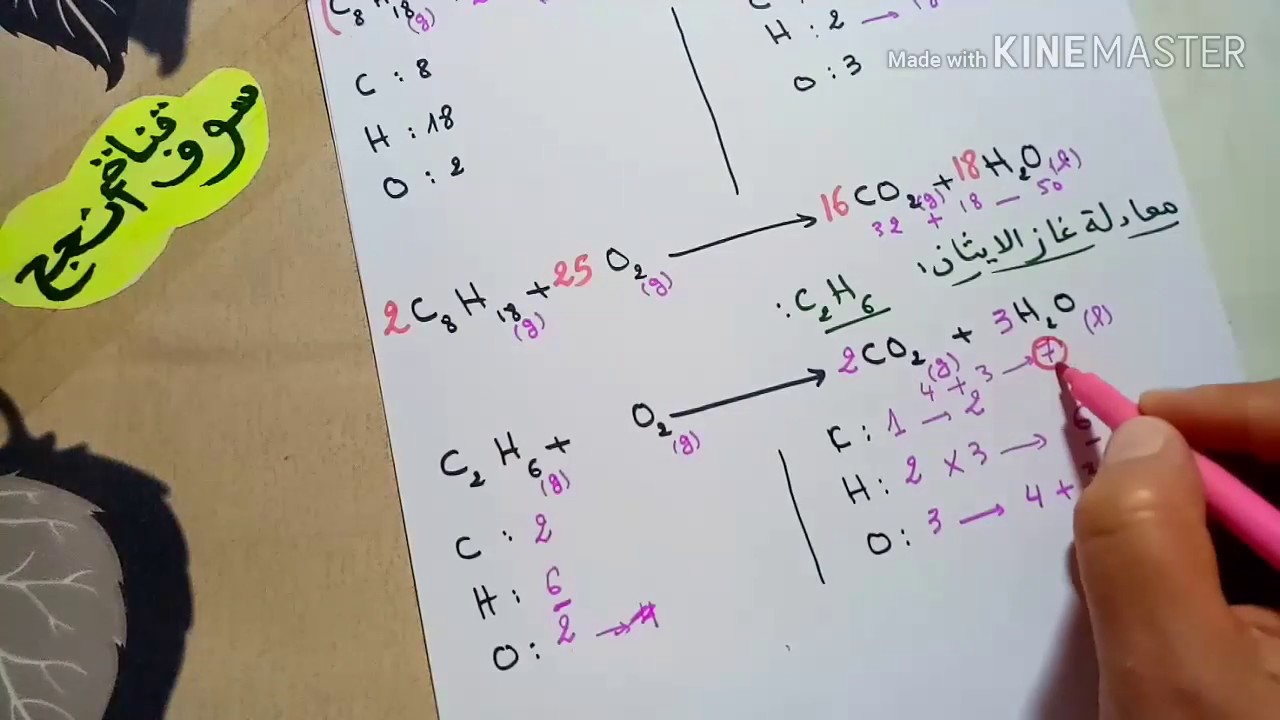 C₈H₁₈(g)
C : 8
H : 18
O : 2
H : 2 →
O : 3
Made with KINEMASTER
سوف
تناقش
انجح
2C₈H₁₈(g) + 25 O₂(g) → 16CO₂(g) + 18H₂O(l)
32 + 18 — 50
معادلة غاز الايثان:
C₂H₆ :
C₂H₆(g) + O₂(g) → 2CO₂(g) + 3H₂O(l)
4 + 3 → 7
C : 2
H : 6
O : 2 → 4
C : 1 → 2
H : 2 × 3 → 6
O : 3 → 4 +